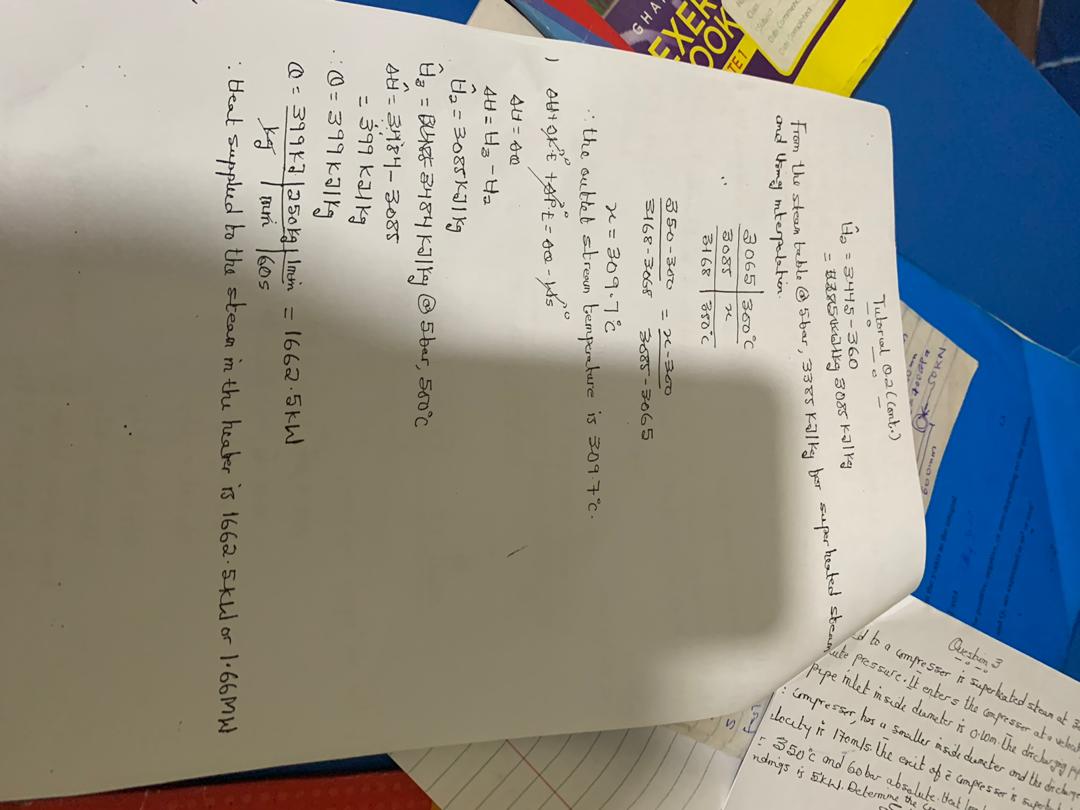 Tutorial Q.2 (cont.)
Ĥ₂ = 3445 - 360
= 3085 kJ/kg
From the steam table @ 5bar, 3385 kJ/kg for superheated steam
and using interpolation.
3065 | 300°C
3085 | x
3168 | 350°C
∴
350-300 = x-300
3168-3065 3085-3065
x = 309.7°C
∴ the outlet stream temperature is 309.7°C.
) ΔH + ΔK.E + ΔP.E = ΔQ - Ws
ΔH = ΔQ
ΔH = H₃ - H₂
Ĥ₂ = 3085 kJ/kg
Ĥ₃ = 3484 kJ/kg @ 5bar, 500°C
ΔĤ = 3484 - 3085
= 399 kJ/kg
∴ Q = 399 kJ/kg
Q = 399 kJ | 250 kg | 1min = 1662.5kW
kg | min | 60s
∴ Heat supplied to the steam in the heater is 1662.5kW or 1.66MW
Question 3
d to a compresser is superheated steam at
ute pressure. It enters the compresser at a
pipe inlet inside diameter is 0.10m. the discharge
compresser, has a smaller inside diameter and the discharge
locity is 170m/s. the exit of compresser is
350°C and 60bar absolute. Heat
ndings is 5kW. Determine the
GHA
EXER
OOK
TE 1
Subject
50KN
600mm